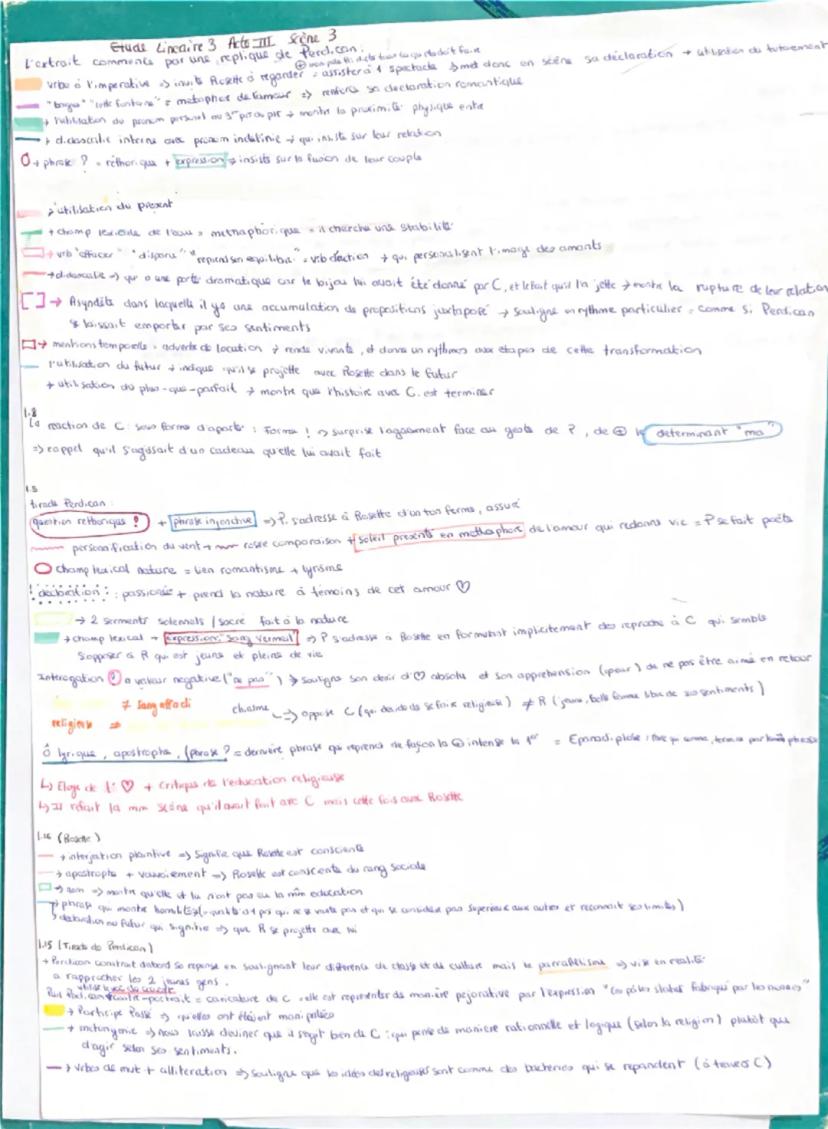 Etude Linéaire 3 Acte III Scène 3
L'extrait commence par une réplique de Perdican :
verbe à l'imperative => invite Rosette à regarder = assister à 1 spectacle → met donc en scène sa déclaration → utilisation du tutoiement
"bague" "cette fontaine" = metaphore de l'amour => renforce sa declaration romantique
+ l'utilisation du pronom personnel au 3e pers → montre la proximité physique entre
→ didascalie interne avec pronom indéfinie → qui insiste sur leur relation
+ phrase ? = réthorique + expression → insiste sur la fusion de leur couple
→ utilisation du present
+ champ lexicale de l'eau = metaphorique = il cherche une stabilité
→ vrb "effacer" "disparu" "reprend son équilibre" = vrb d'action → qui personnalisent l'image des amants
→ didascalie => qui a une porté dramatique car le bijou lui avait été donné par C, et le fait qu'il l'a jette → montre la rupture de leur relation
[ ] → Asyndète dans laquelle il y a une accumulation de propositions juxtaposé → souligne un rythme particulier = comme si Perdican
se laissait emporter par ses sentiments
→ mentions temporelle = adverbe de locution → rende vivante, et donne un rythmes aux etapes de cette transformation
l'utilisation du futur → indique qu'il se projette avec Rosette dans le futur
+ utilisation du plus-que-parfait → montre que l'histoire avec C. est terminer
l.8
La reaction de C : sous forme d'aparté : Forme ! → surprise l'agacement face au geste de P, de ⊕ le determinant "ma"
=> rappel qu'il s'agissait d'un cadeau qu'elle lui avait fait
tirade Perdican :
question réthorique ! + phrase injonctive => P. s'adresse à Rosette d'un ton ferme, assuré
personnification du vent → rosée comparaison + soleil presenté en métaphore de l'amour qui redonne vie = P se fait poète
champ lexical nature = lien romantisme + lyrisme
déclaration : passionée + prend la nature à témoins de cet amour ♡
→ 2 serments solennels / sacré fait à la nature
→ champ lexical + expression: sang vermeil => P s'adresse a Rosette en formulant implicitement des reproche à C qui semble
s'opposer à R qui est jeune et pleine de vie
Interogation a valeur negative ("ne pas") → souligne son desir d'♡ absolu et son apprehension (peur) de ne pas être aimé en retour
≠ sang affadi
religieuse => => oppose C (qui decide de se faire religieuse) ≠ R (jeune, belle femme libre de ses sentiments)
ô lyrique, apostrophe, (phrase ? = dernière phrase qui reprend de façon la ⊕ intense la 1er = Epanadiplose
↳ Eloge de l'♡ + Critique de l'éducation religieuse
↳ Il refait la mm scène qu'il avait fait avec C mais cette fois avec Rosette
l.16 (Rosette)
→ interjation plaintive => Signifie que Rosette est consciente
→ apostrophe + vouvoiement => Rosette est consciente du rang sociale
→ nom => montre qu'elle et lu n'ont pas eu la mm education
phrase qui montre qui ne se vante pas et qui se considèr pas superieur aux autres et reconnait ses limites)
declaration au futur qui signifie => que R se projette avec lui
l.15 (Tirade de Perdican)
→ Perdican construit dabord sa reponse en soulignant leur différence de classe et de culture mais le parrallélisme => vise en realité
a rapprocher les 2 jeunes gens.
Puis Perdican contre-portrait = caricature de C : elle est représenter de manière péjorative par l'expression "ces pâles statues fabriqué par les nonnes"
→ Participe Passé => qu'elles ont étaient manipulées
→ métonymie => nous laisse deviner que il s'agit bien de C : qui pense de maniere rationnelle et logique (selon la religion) plutôt que
d'agir selon ses sentiments.
→ vrbes de mvt + alliteration => souligne que les idées des religieuses sont comme des bactéries qui se repandent (à travers C)